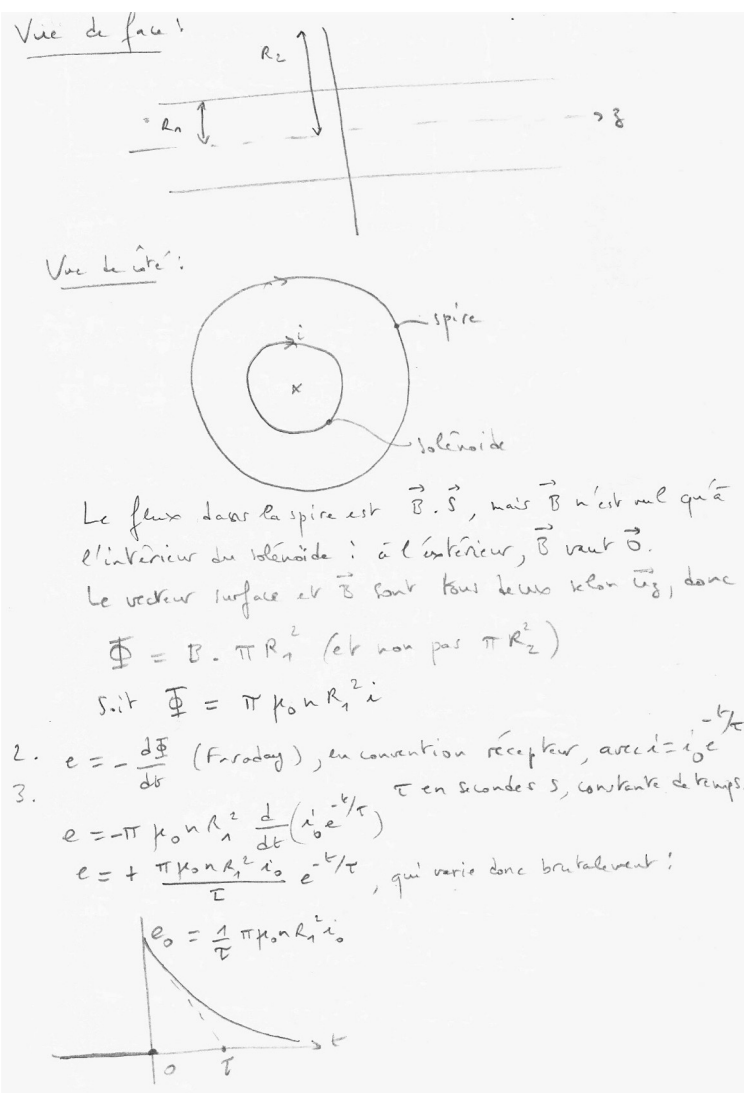 Vue de face :
R₂
R₁
z
Vue de côté :
spire
i
solénoïde
Le flux dans la spire est B⃗ . S⃗, mais B⃗ n'est nul qu'à
l'intérieur du solénoïde : à l'extérieur, B⃗ vaut 0⃗.
Le vecteur surface et B⃗ sont tous deux selon u⃗z, donc
Φ = B . π R₁² (et non pas π R₂²)
Soit Φ = π μ₀ n R₁² i
2. e = - dΦ/dt (Faraday), en convention récepteur, avec i = i₀ e^(-t/τ)
3. τ en secondes s, constante de temps.
e = -π μ₀ n R₁² d/dt (i₀ e^(-t/τ))
e = + (π μ₀ n R₁² i₀)/τ e^(-t/τ), qui varie donc brutalement :
e₀ = 1/τ π μ₀ n R₁² i₀
t
0 τ